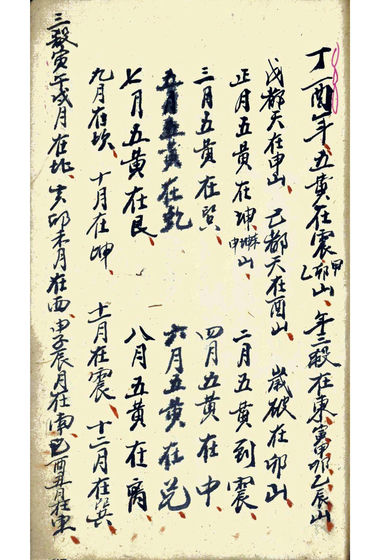 丁酉年五黄在震甲卯乙山、年三殺在東寅甲卯乙辰山
戊都天在申山、己都天在酉山 歲破在卯山
正月五黄在坤未坤申山、二月五黄到震
三月五黄在巽、四月五黄在中
五月五黄在乾 六月五黄在兑
七月五黄在艮 八月五黄在离
九月在坎、十月在坤 十一月在震、十二月在巽
三殺寅午戌月在北 亥卯未月在西、申子辰月在南、巳酉丑月在東